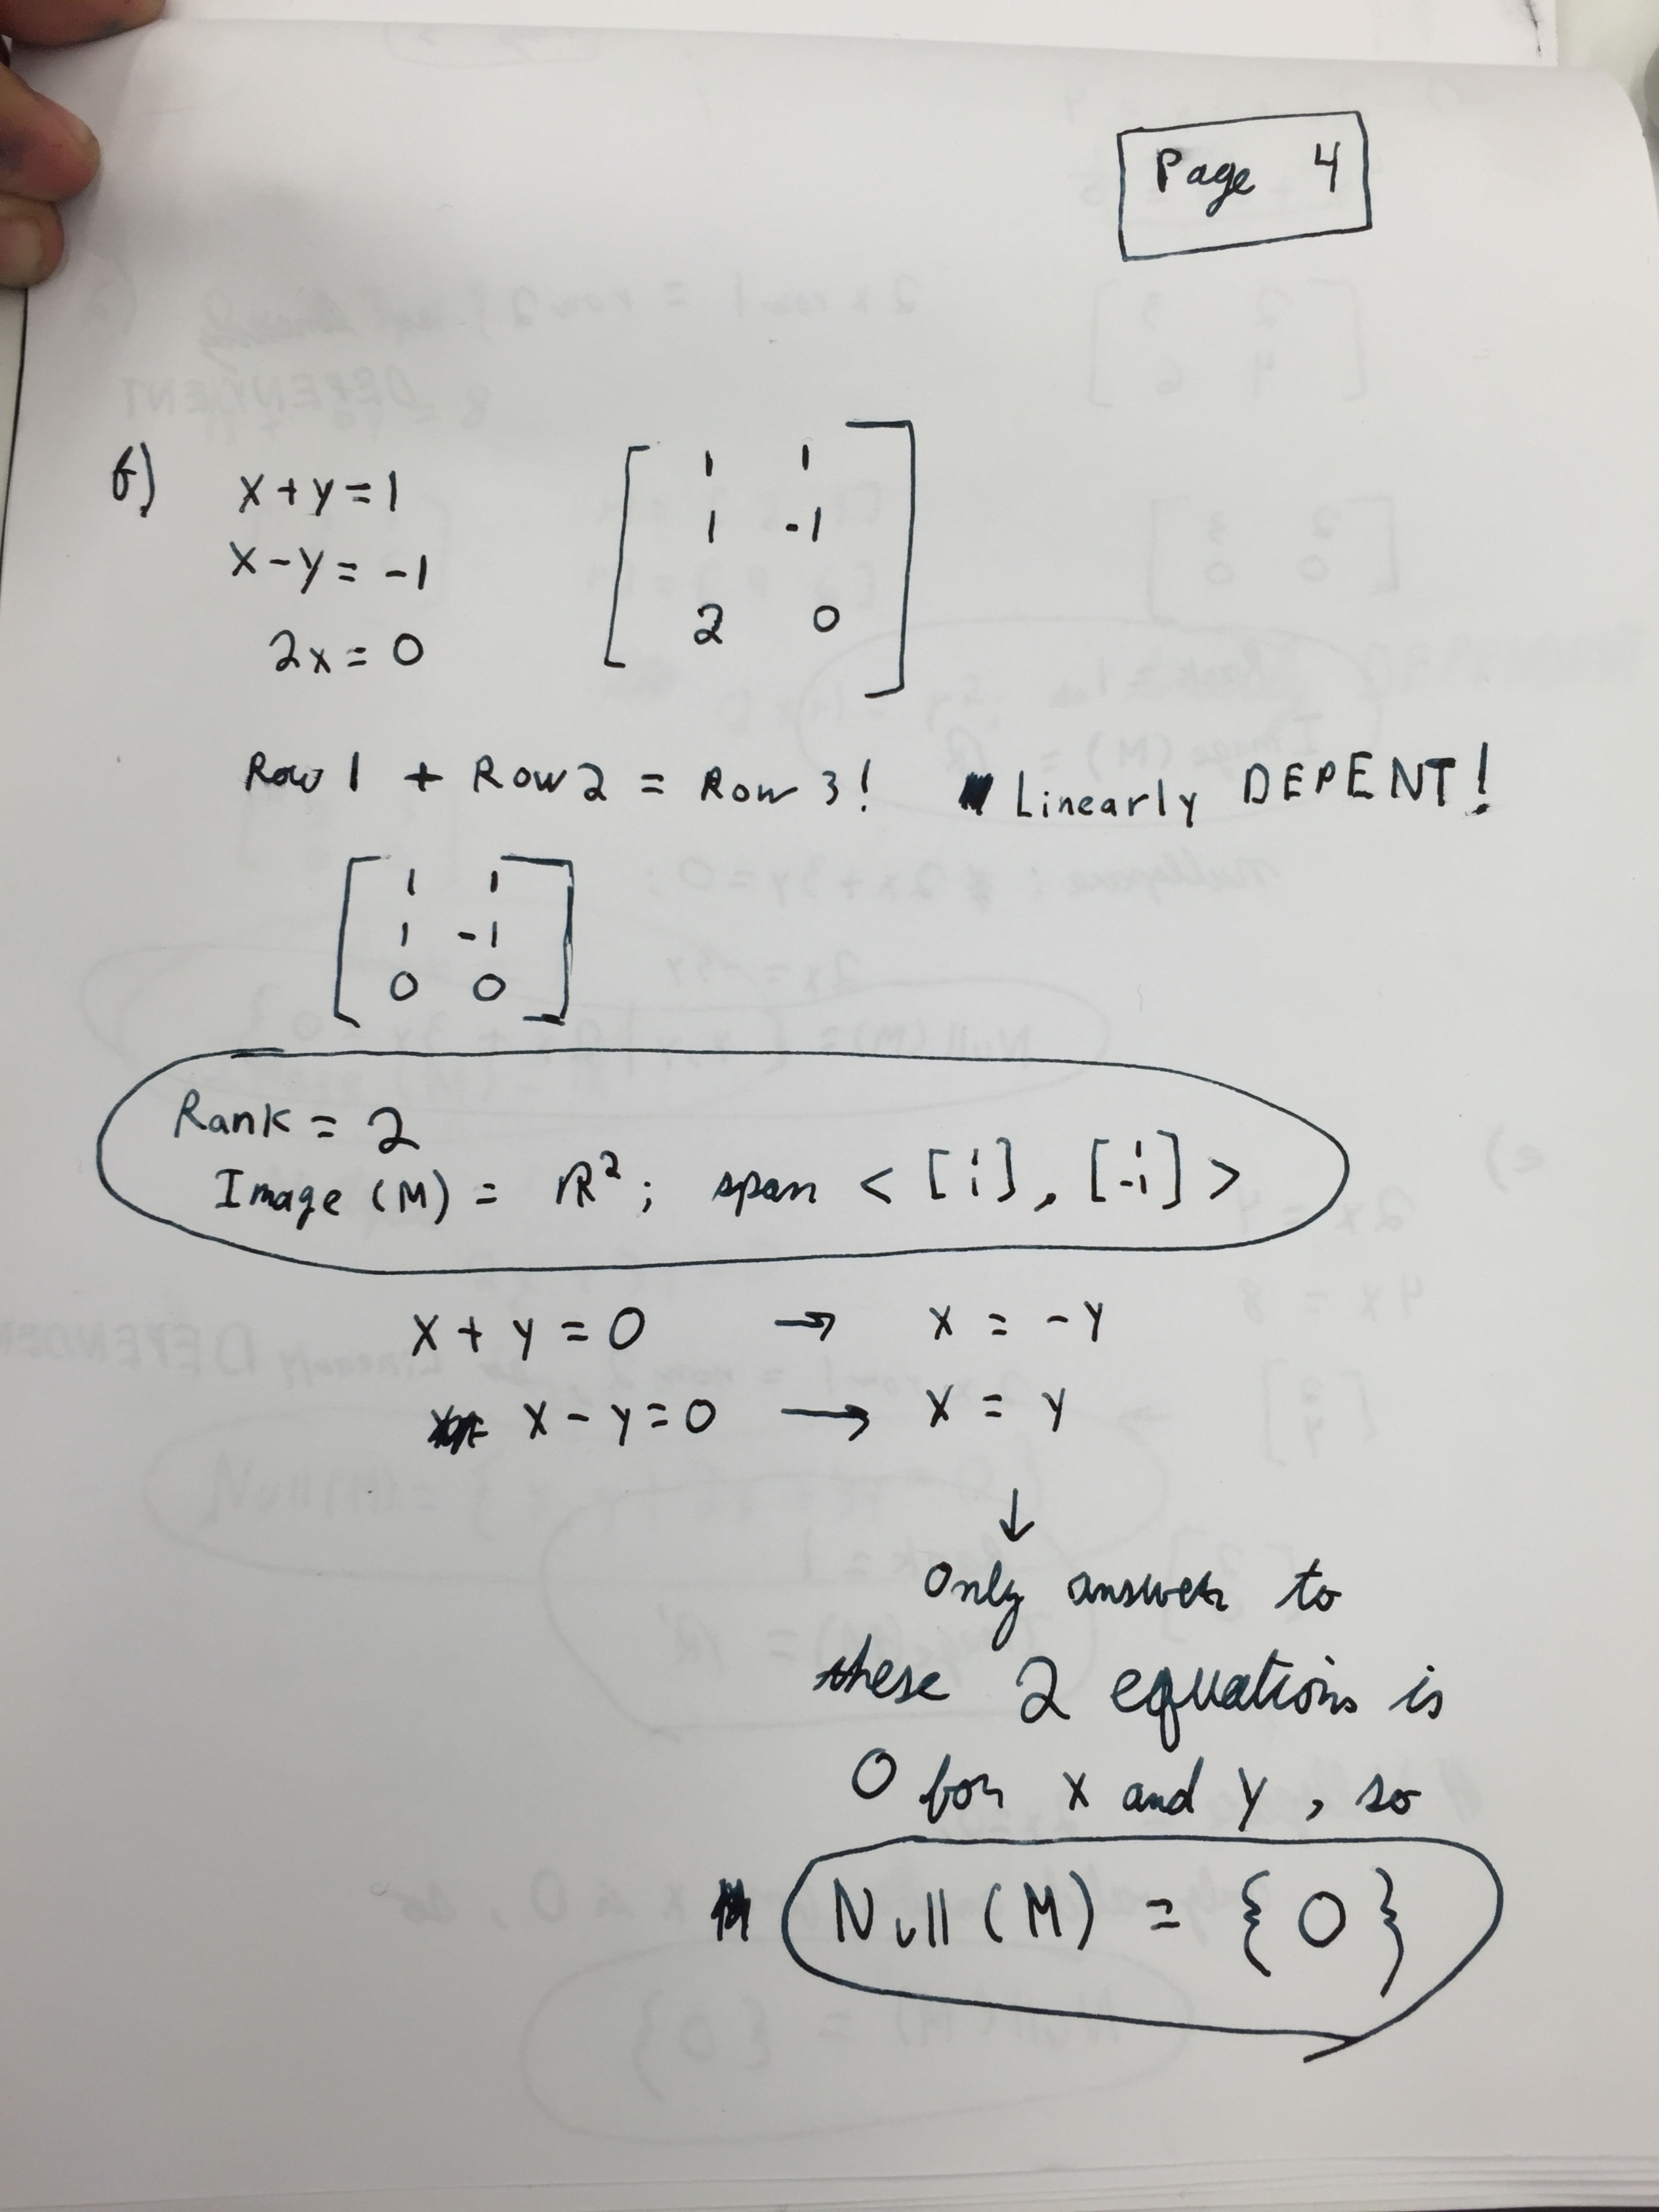 Page 4
f) x+y=1
x-y=-1
2x=0
[ 1 1
1 -1
2 0 ]
Row 1 + Row 2 = Row 3! Linearly DEPENT!
[ 1 1
1 -1
0 0 ]
Rank = 2
Image (M) = ℝ²; span < [1 1], [1 -1] >
x + y = 0 → x = -y
x - y = 0 → x = y
↓
Only answer to
these 2 equations is
0 for x and y, so
Null (M) = {0}